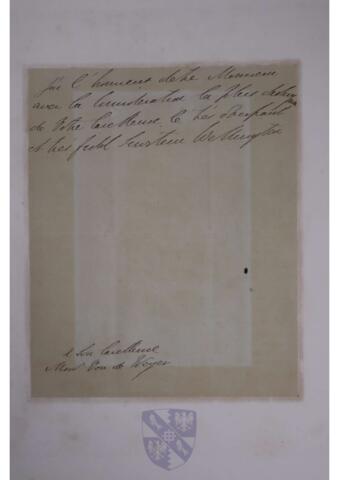 J'ai l'honneur d'etre Monsieur
avec la Consideration la plus distinguée
de Votre Excellence le très obeissant
et tres fidel Serviteur Wellington
a Son Excellence
Mons Van de Weyer